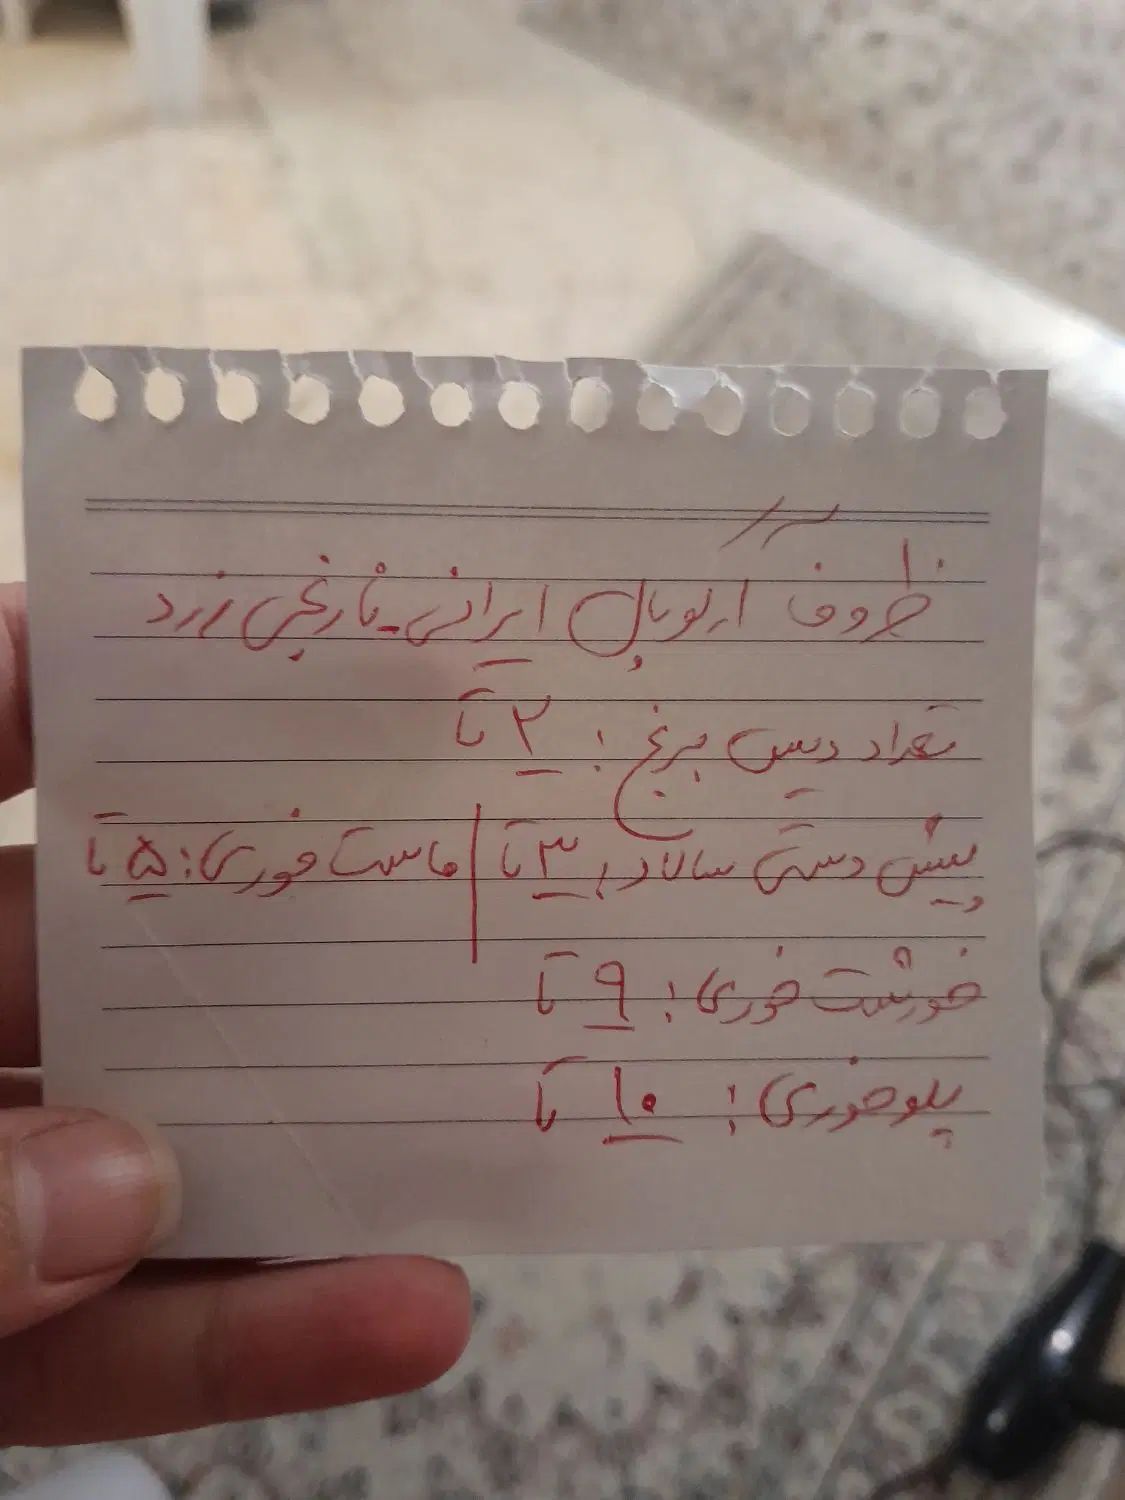 ظروف ارکوپال ایرانی - نارنجی زرد
تعداد دیس برنج : ۲ تا
پیش دستی سالاد : ۳ تا | ماست خوری : ۵ تا
خورشت خوری : ۹ تا
پلوخوری : ۱۰ تا